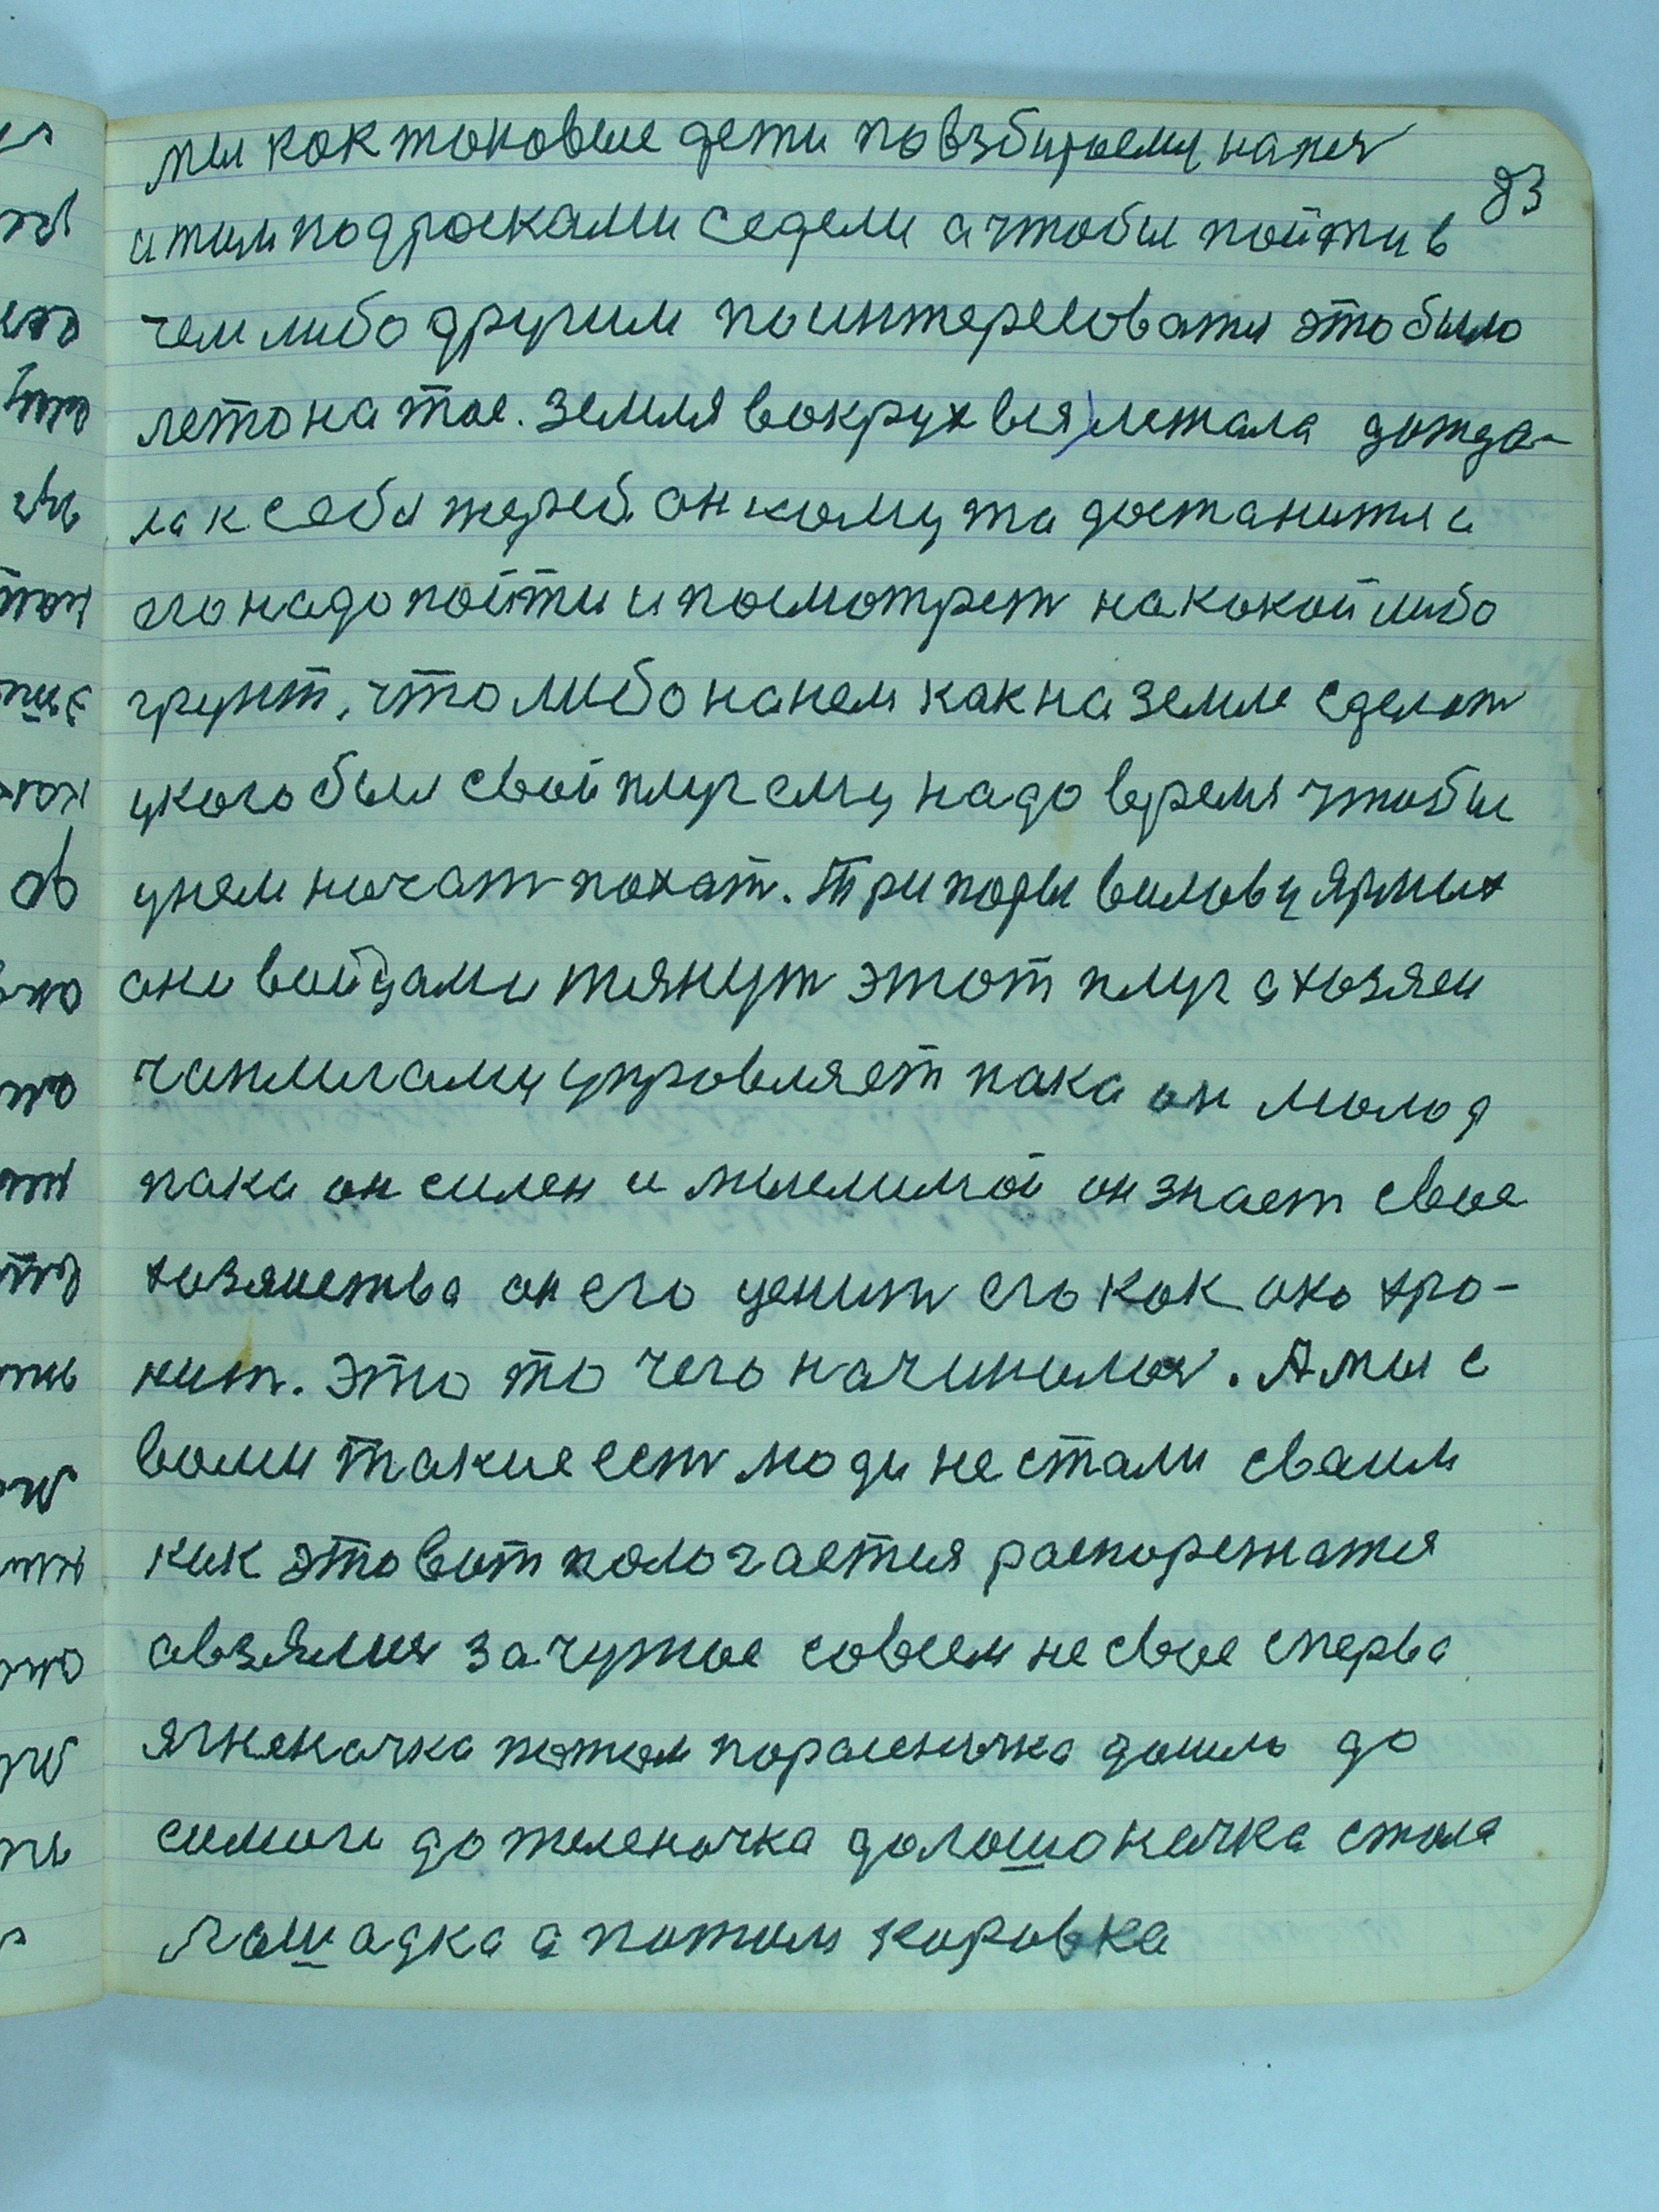 83
мы как таковые дети повзбираемц на печ
и там под рсками седели а чтобы пойти в
чем либо другим поинтересоватя это было
лето на тое. Земля вокрух вся лежала дожда-
ла к себя жерей он кому та достанится
его надо пойти и посмотрет на какой либо
грунт, что либо на нем как на земле сделат
у кого был свой плуг ему надо время чтобы
у нем начат пахат. Три пары вилов у ярмых
они войдами тянут этот плуг а хозяеи
чапигами управляет пака он молод
пака он силен и мыслимой он знает свое
хозяиства он его ценит его как око хро-
нит. Это то чего начинился. А мы с
вами такие ест люди не стали сваим
как это вот полочается распорежатя
а взялися за чужое совсем не свое сперва
ягненачка потом парасеначка дошло до
самоги до теленачка до лошоначка стала
лошадка а потом коровка